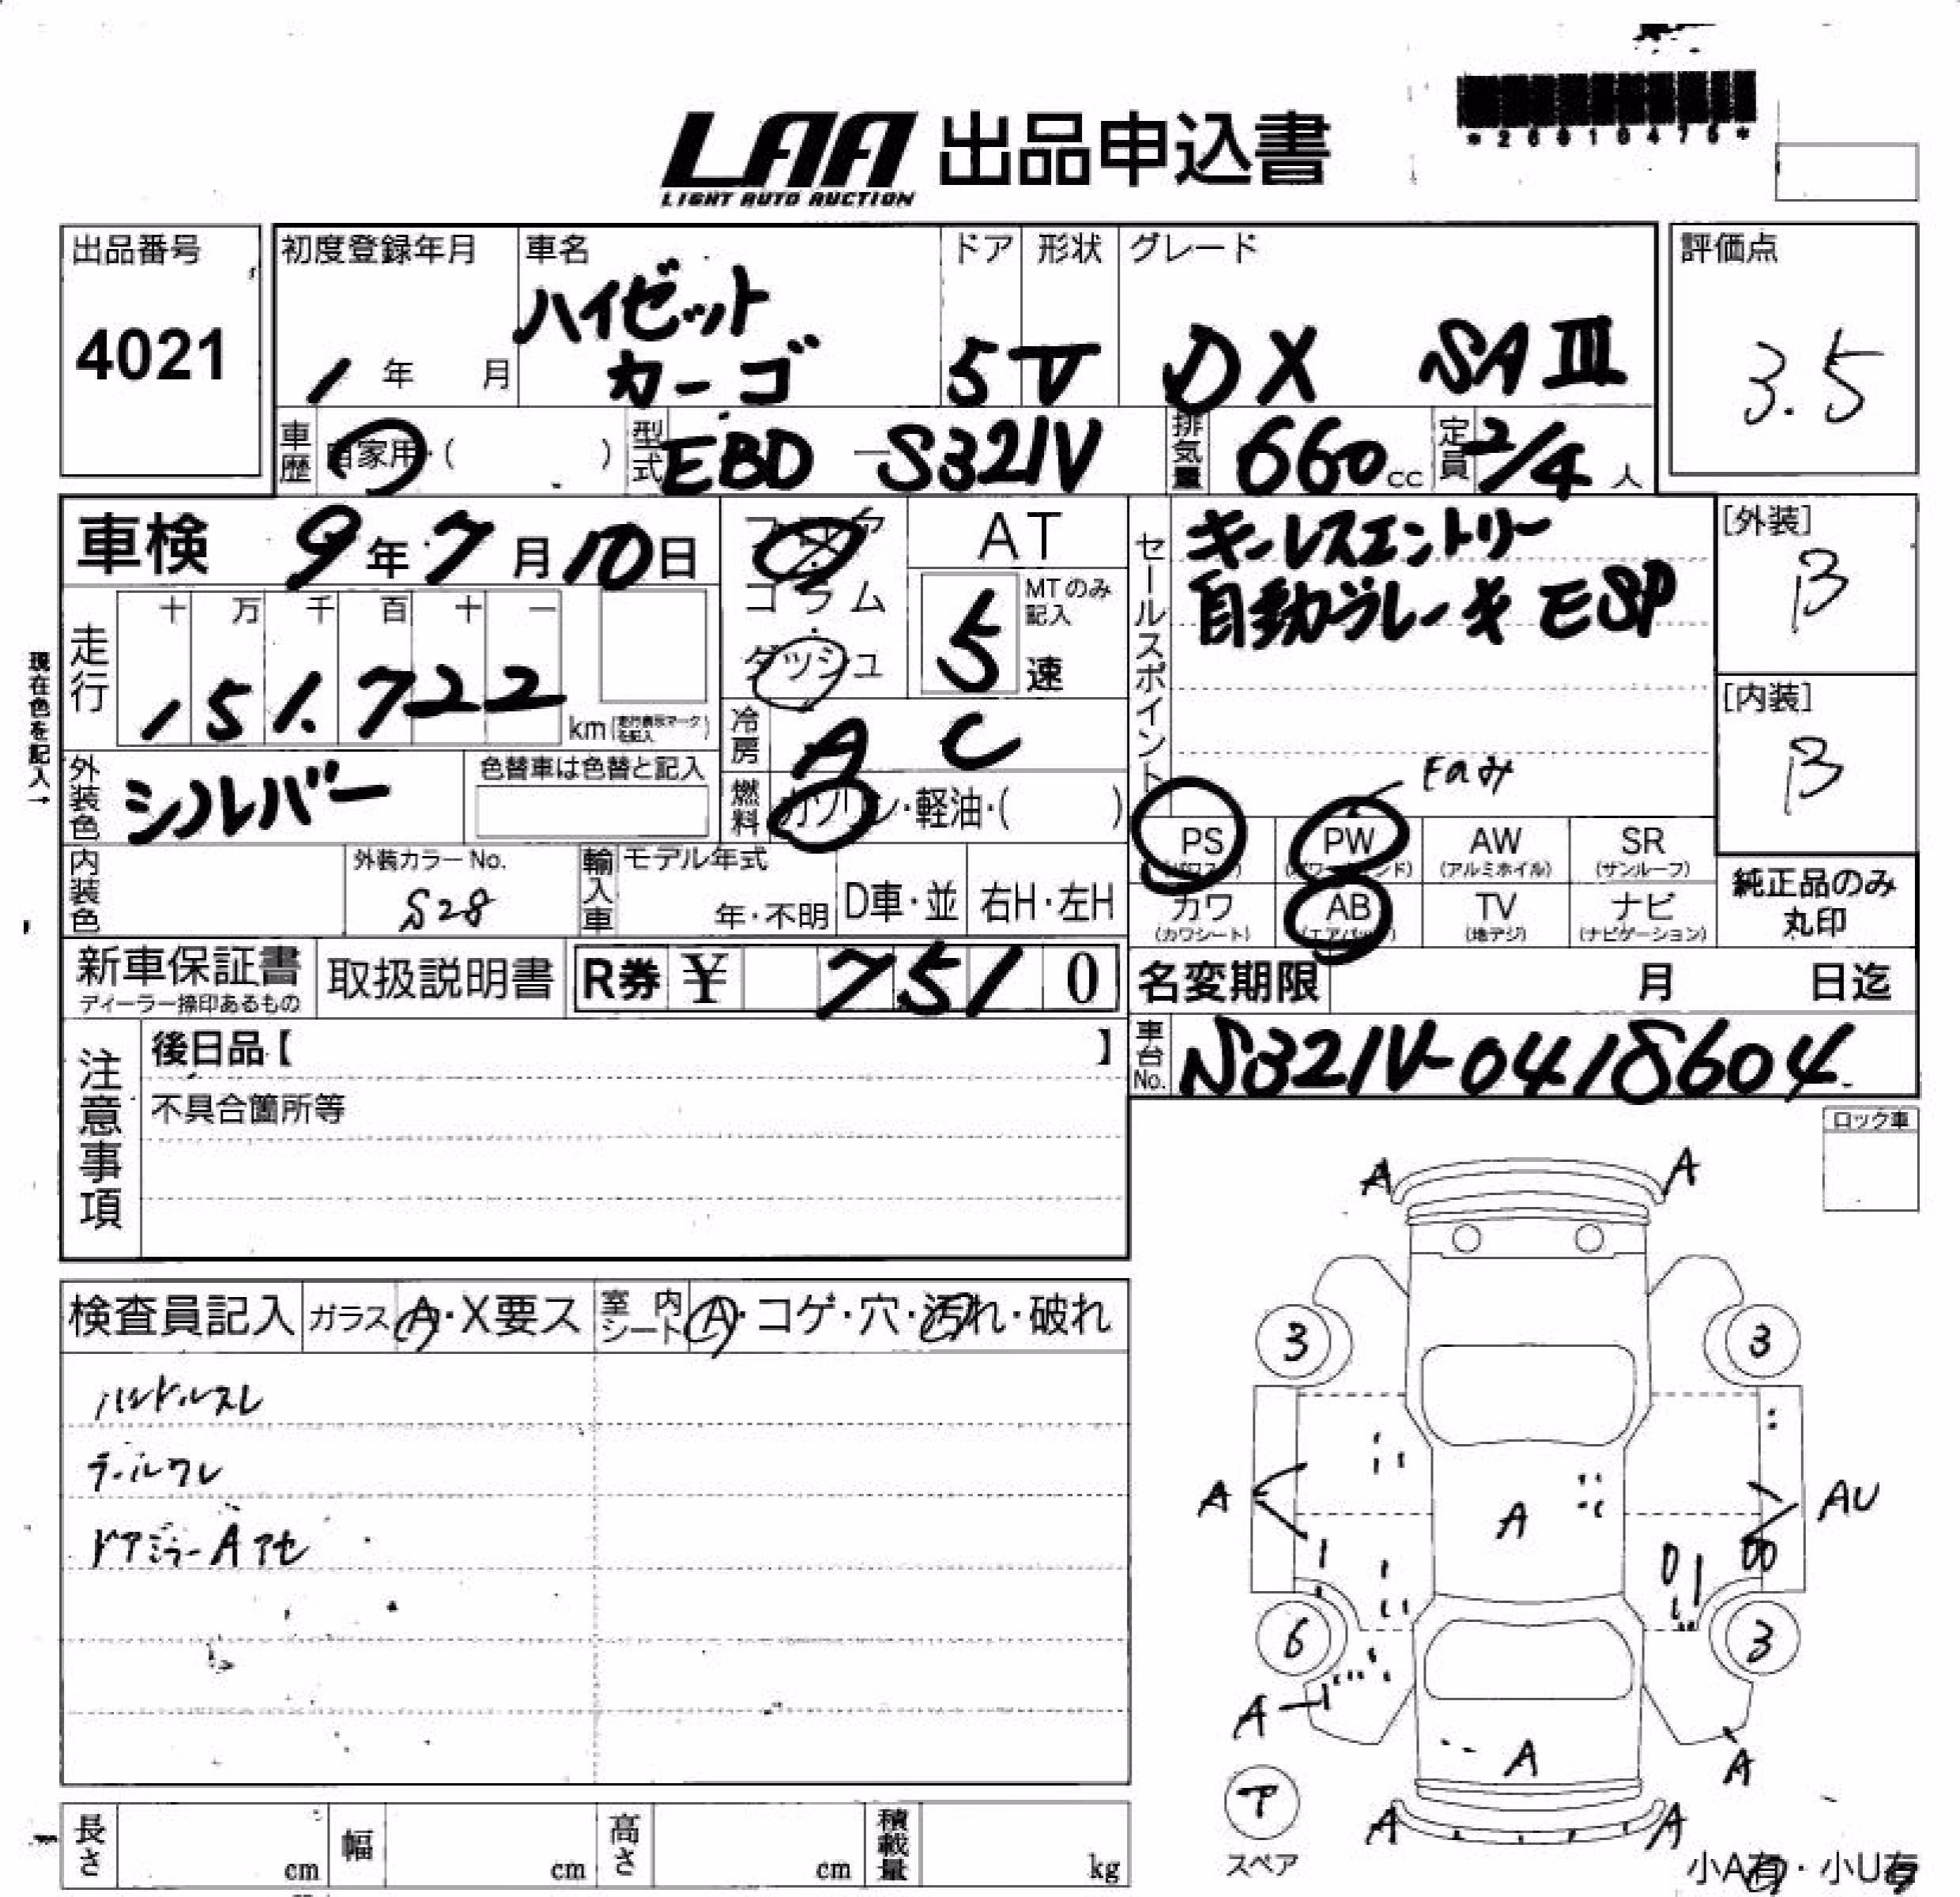 LAA 出品申込書
LIGHT AUTO AUCTION
出品番号
4021
初度登録年月
1 年 月
車名
ハイゼット
カーゴ
ドア
5
形状
V
グレード
DX SAIII
評価点
3.5
車歴
自家用・( )
型式
EBD-S321V
排気量
660cc
定員
2/4 人
車検 9年7月10日
フロア・コラム・ダッシュ
AT
MTのみ記入
5速
セールスポイント
キーレスエントリー
自動ブレーキ ESP
[外装]
B
[内装]
B
現在色を記入→
走行
十 万 千 百 十 一
151.722
km(走行表示マークを記入)
冷房
AC
外装色
シルバー
色替車は色替と記入
燃料
ガソリン・軽油・( )
Fのみ
PS (パワステ)
PW (パワーウインド)
AW (アルミホイル)
SR (サンルーフ)
カワ (カワシート)
AB (エアバッグ)
TV (地デジ)
ナビ (ナビゲーション)
純正品のみ
丸印
内装色
外装カラーNo.
S28
輸入車
モデル年式
年・不明
D車・並
右H・左H
新車保証書
ディーラー捺印あるもの
取扱説明書
R券 ¥ 7510
名変期限 月 日迄
車台No.
S321V-0418604
注意事項
後日品【 】
不具合箇所等
ロック車
検査員記入
ガラス A・X要ス
室内シート A・コゲ・穴・汚れ・破れ
ハンドルスレ
テールワレ
ドアミラーAアセ
A A
3 3
A A AU
6 3
A A A
ア
スペア
A A
小A有・小U有
長さ cm
幅 cm
高さ cm
積載量 kg